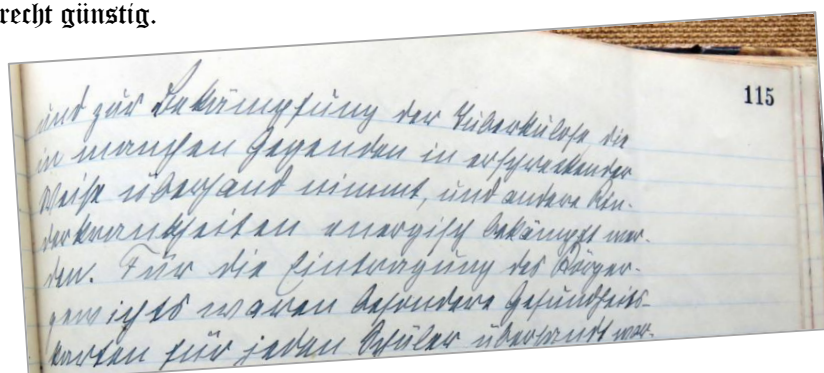 recht günstig.
115
und zur Bekämpfung der Tuberkulose, die
in manchen Gegenden in erschreckender
Weise überhand nimmt, und andere Kin-
derkrankheiten energisch bekämpft wer-
den. Für die Eintragung des Körper-
gewichts waren besondere Gesundheits-
karten für jeden Schüler übersandt wor-